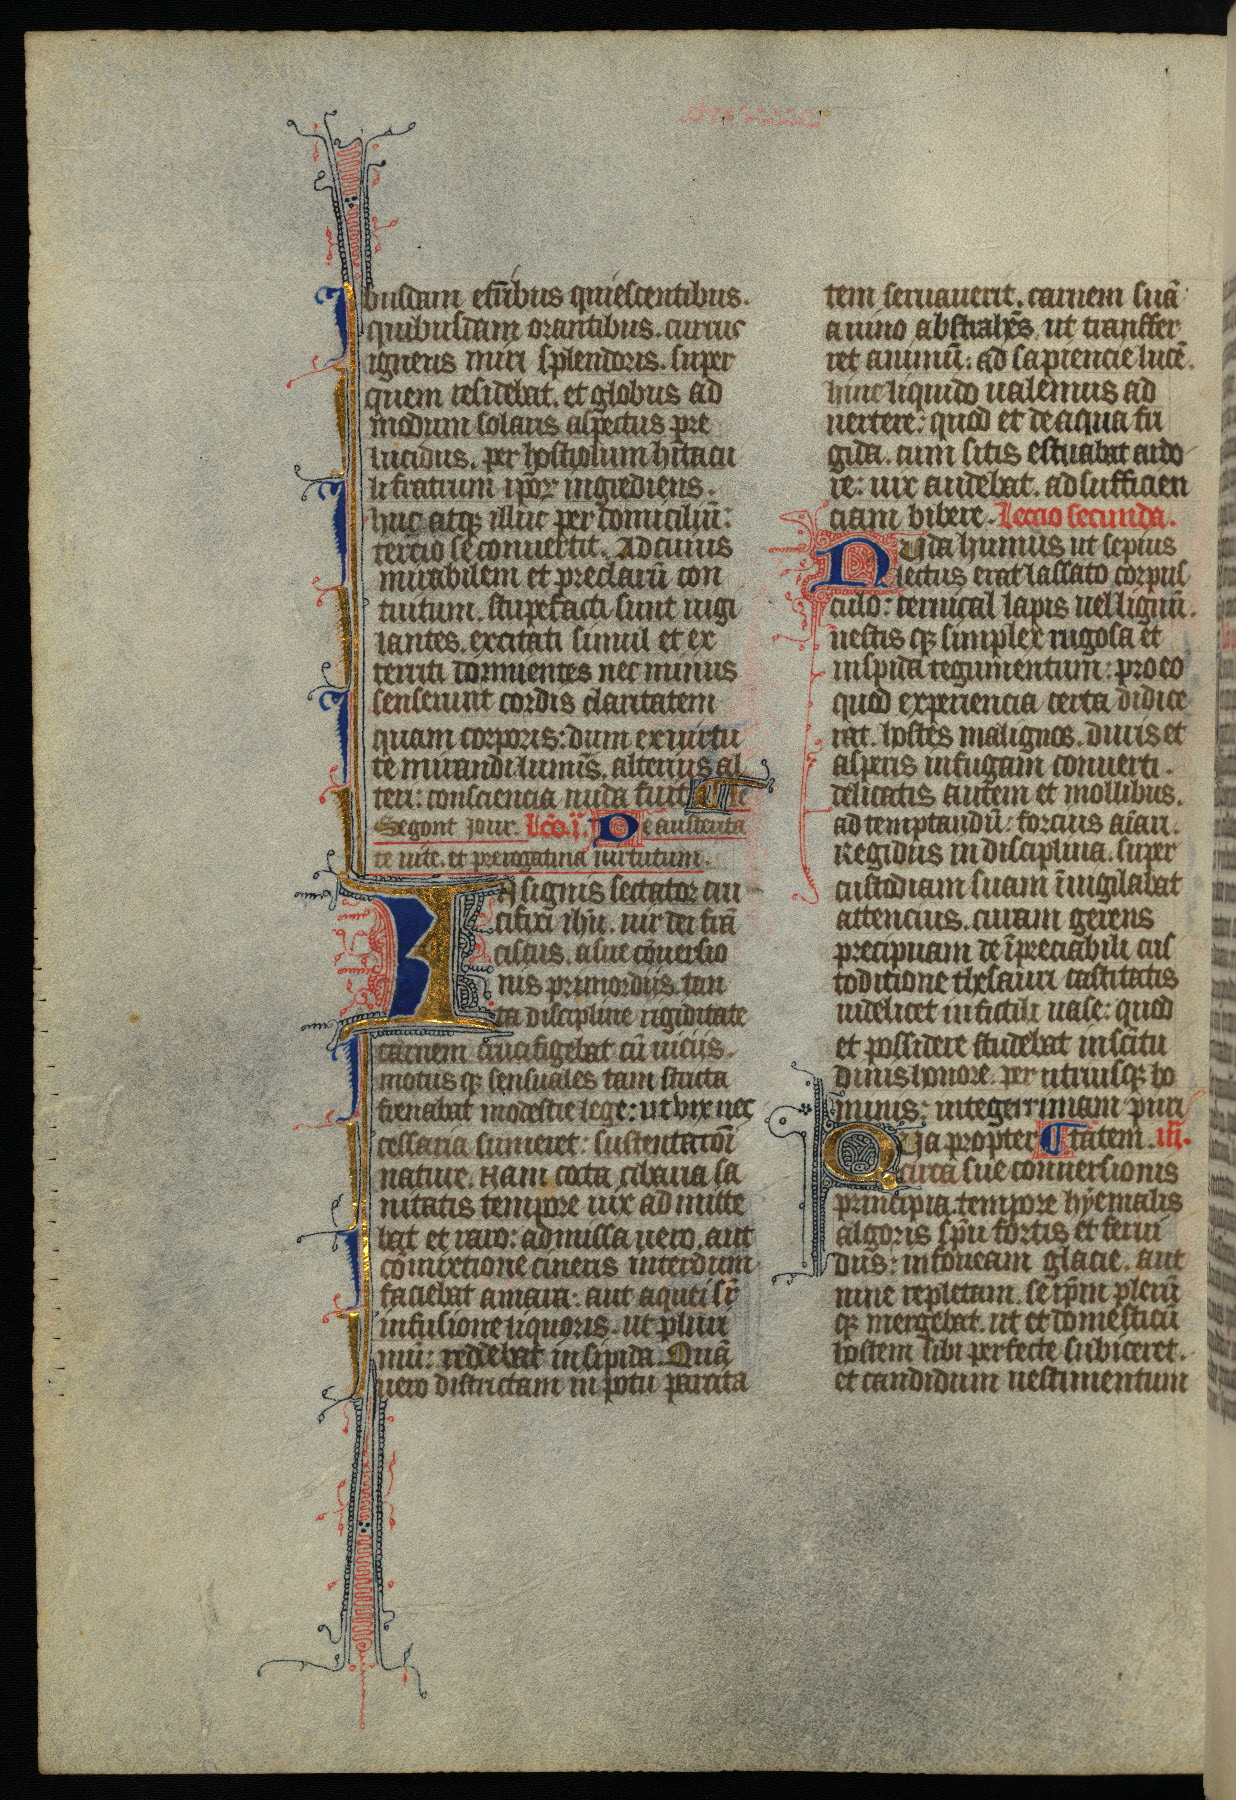 busdam eſtib9 quiescentibus.
quibusdam orantibus. currus
igneus miri splendoris. super
quem residebat. et globus ad
modum solaris aspectus pre
lucidus. per hostiolum hitacu
li fratrum ip̄oꝝ ingrediens.
huc atqꝫ illuc per domiciliū:
tercio se conuertit. Ad cuius
mirabilem et preclarū con
tuitum. stupefacti sunt uigi
lantes. excitati simul et ex
territi dormientes nec minus
senserunt cordis claritatem
quam corporis: dum ex uirtu
te mirandi luminis. alterius al
teri: consciencia nuda fuit.
Segont jour. Lc̄o .i. De austerita
te uite. et prerogatiua uirtutum.
Insignis sectator cru
cifixi ihū. uir dei frā
ciscus. a sue cōuersio
nis primordiis. tan
ta discipline rigiditate
carnem crucifigebat cū uiciis.
motus qꝫ sensuales tam stricta
frenabat modestie lege: ut vix nec
cessaria sumeret: sustentatōi
nature. Nam cocta cibaria sa
nitatis tempore uix admitte
bat et raro: admissa uero. aut
cōmixtione cineris interdum
faciebat amara: aut aque
infusione liquoris. ut pluri
mū: reddebat insipida. Quā
uero districtam in potu parcita
tem seruauerit. carnem suā
a uino abstrahēs ut transfer
ret animū: ad sapiencie lucē.
hinc liquido ualemus ad
uertere: quod et de aqua fri
gida. cum sitis estuabat ardo
re: uix audebat. ad sufficien
ciam bibere. Lectio secunda.
Nuda humus ut sepius
lectus erat lassato corpus
culo: ceruical lapis uel lignū.
uestis qꝫ simplex rugosa et
hispida tegumentum: pro eo
quod experiencia certa didice
rat. hostes malignos. duris et
asperis in fugam conuerti.
delicatis autem et mollibus.
ad temptandū: forcius aīari.
Regidus in disciplina. super
custodiam suam īuigilabat
attencius. curam gerens
precipuam de īpreciabili cus
toditione thesauri castitatis
uidelicet in fictili uase: quod
et possidere studebat in scītu
dinis honore. per utriusqꝫ ho
minis: integerrimam puri
Qua propter tātem. iii.
circa sue conuersionis
principia. tempore hyemalis
algoris sp̄u fortis et ferui
dus: in foueam glacie. aut
niue repletam. se ip̄m plerū
qꝫ mergebat. ut et domesticū
hostem sibi perfecte subiceret.
et candidum uestimentum